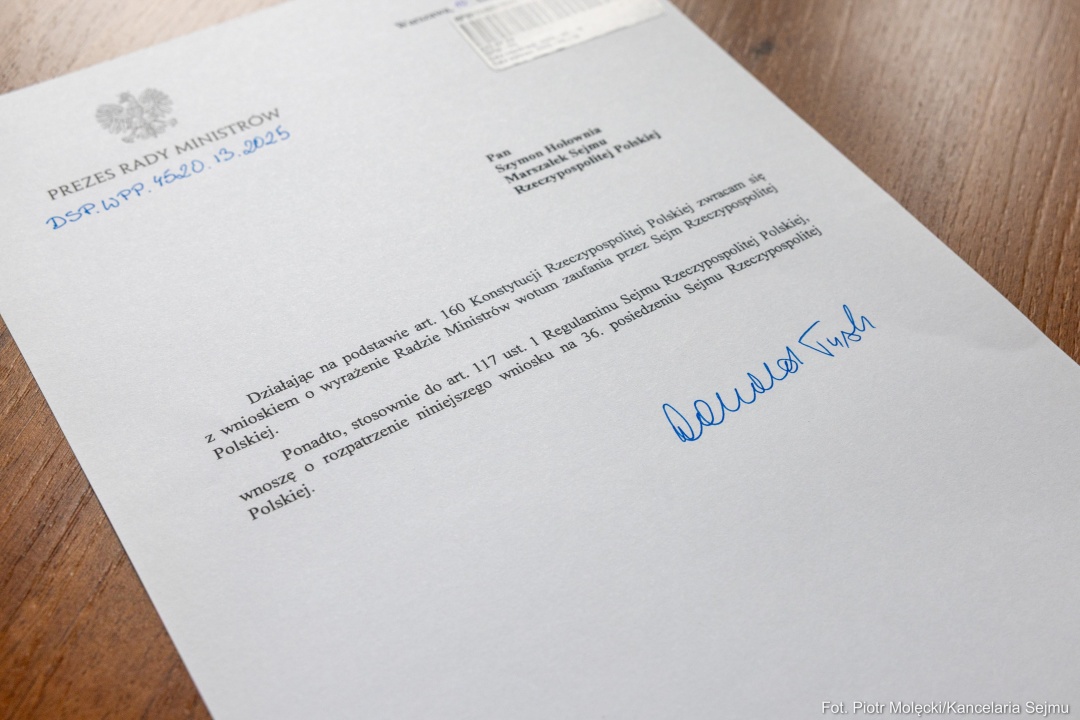 Warszawa,
PREZES RADY MINISTRÓW
DSP.WPP.4520.13.2025
Pan
Szymon Hołownia
Marszałek Sejmu
Rzeczypospolitej Polskiej
Działając na podstawie art. 160 Konstytucji Rzeczypospolitej Polskiej zwracam się
z wnioskiem o wyrażenie Radzie Ministrów wotum zaufania przez Sejm Rzeczypospolitej
Polskiej.
Ponadto, stosownie do art. 117 ust. 1 Regulaminu Sejmu Rzeczypospolitej Polskiej,
wnoszę o rozpatrzenie niniejszego wniosku na 36. posiedzeniu Sejmu Rzeczypospolitej
Polskiej.
Donald Tusk
Fot. Piotr Molęcki/Kancelaria Sejmu